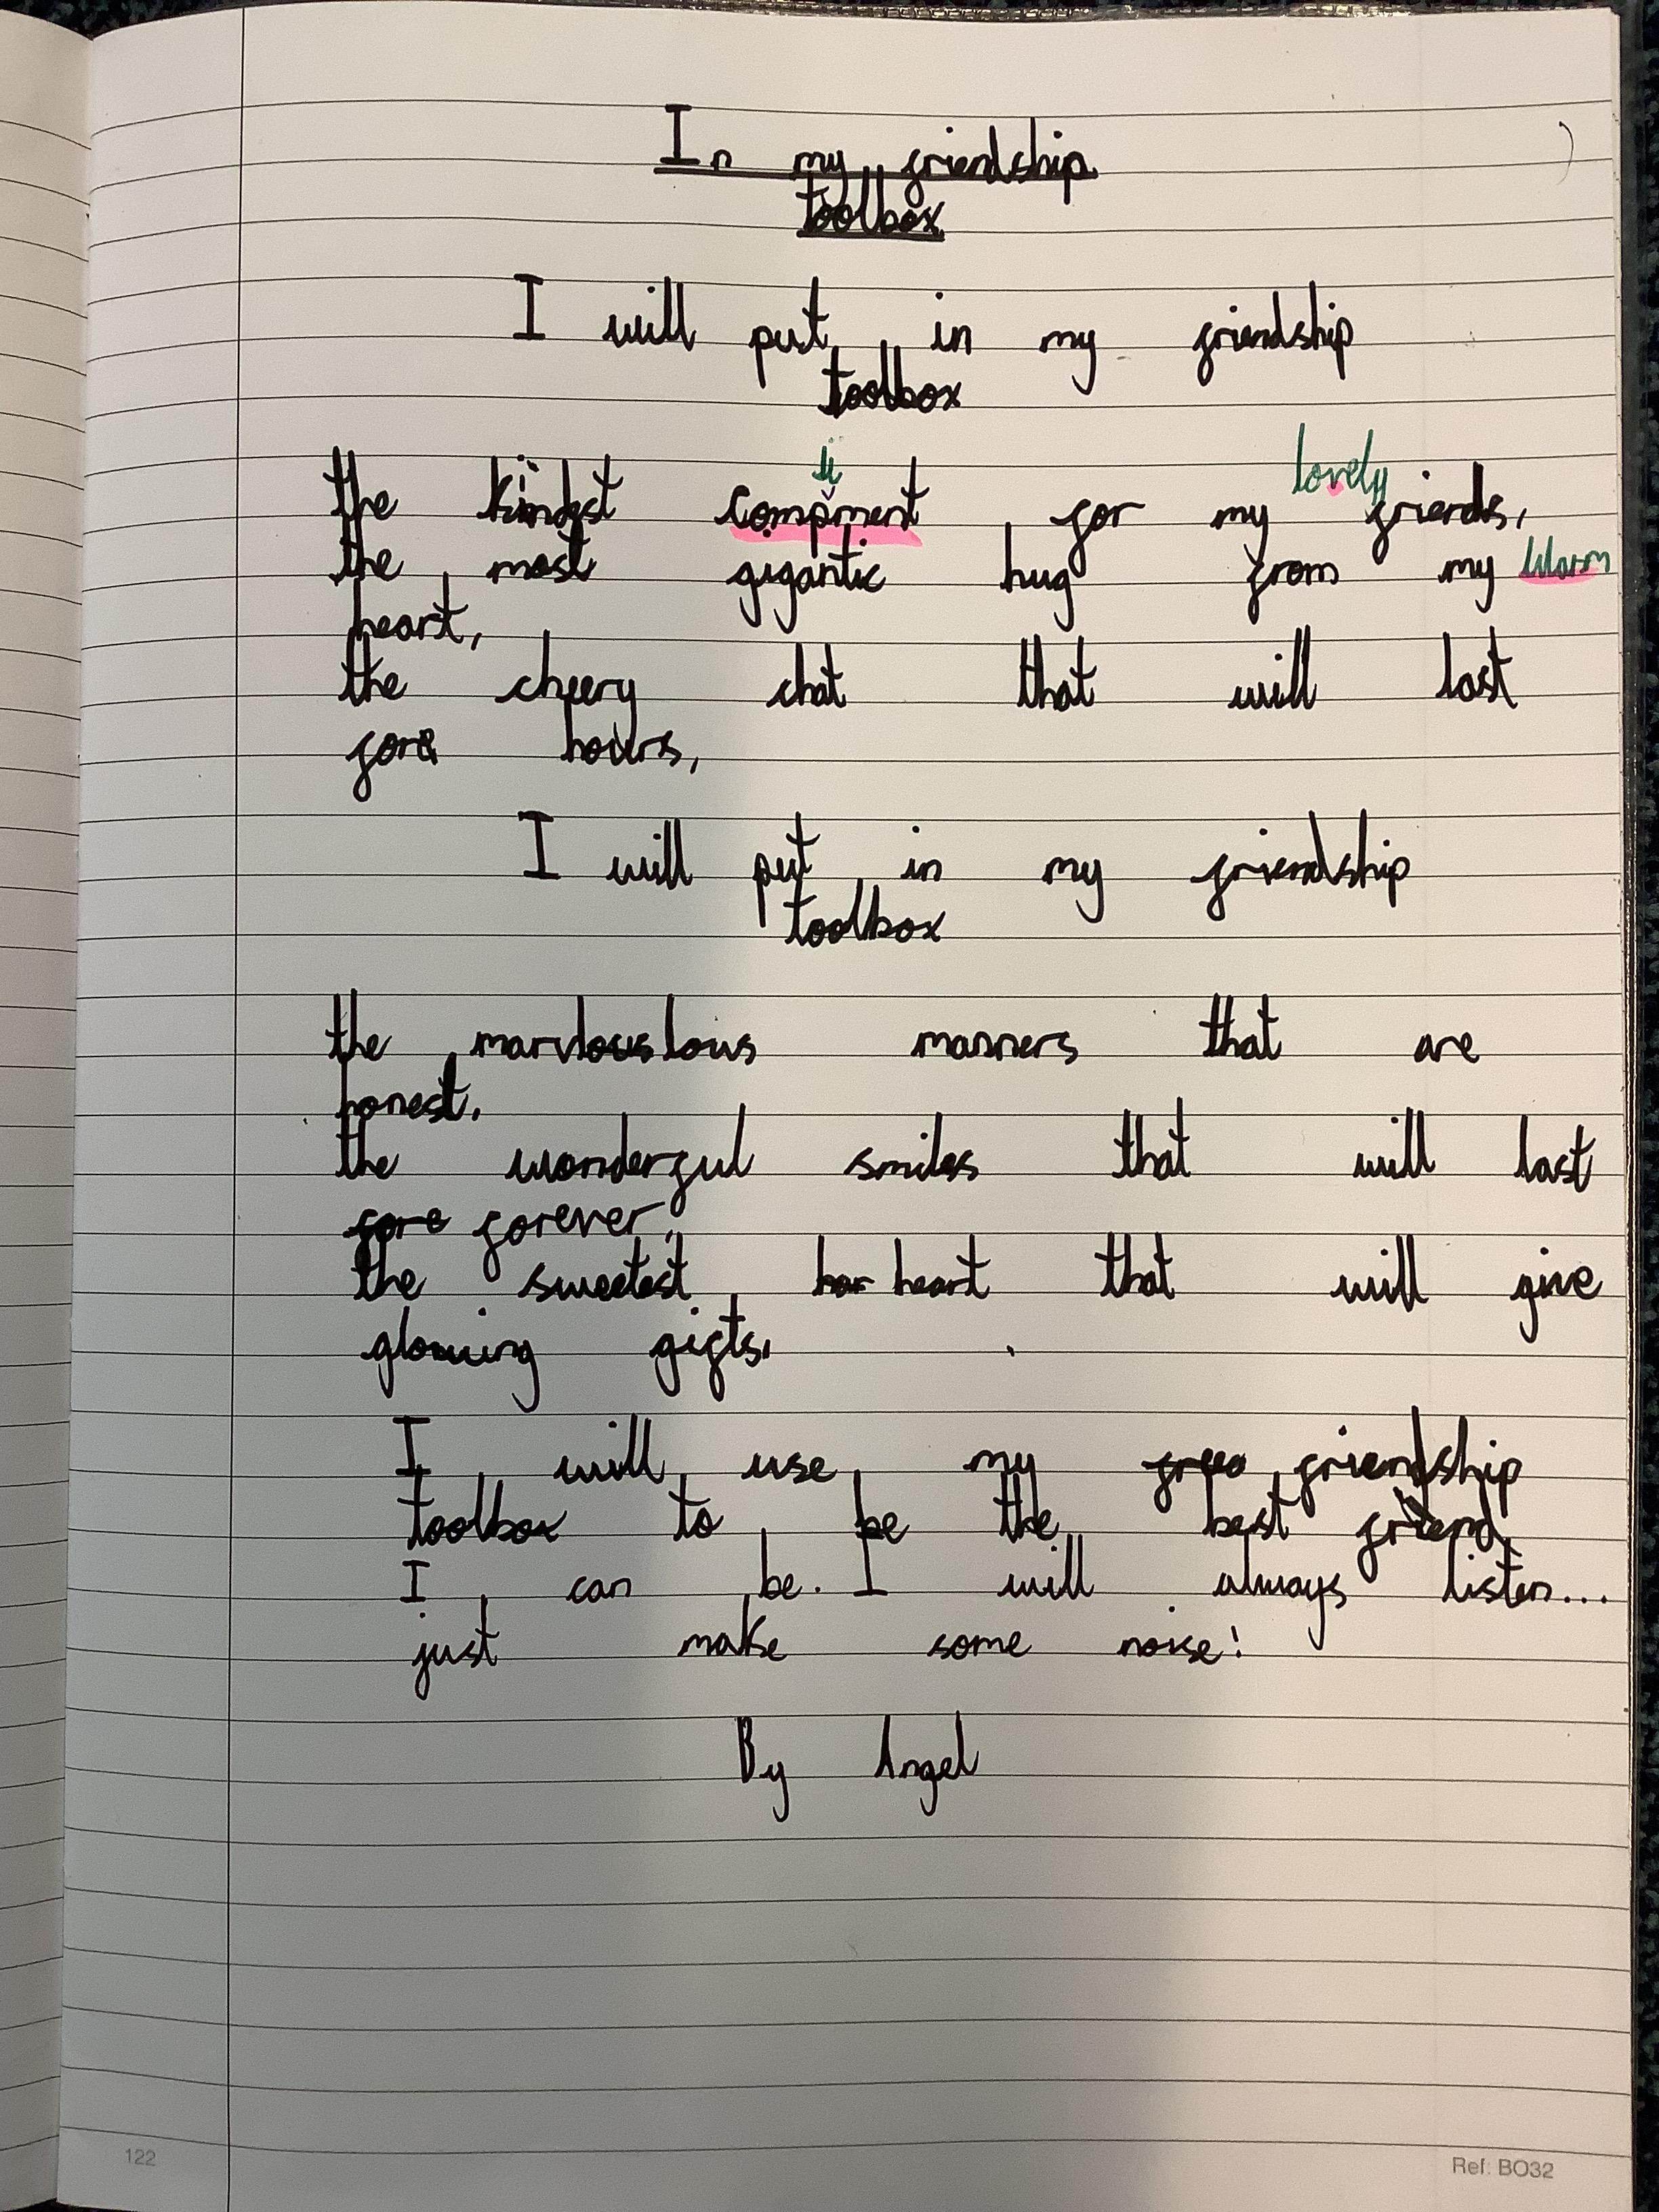 In my friendship
toolbox
I will put in my friendship
toolbox
li lovely
the kindest compment for my friends,
the most gigantic hug from my warm
heart,
the cheery chat that will last
fore hours,
I will put in my friendship
toolbox
the marvlouslous manners that are
honest.
the wonderful smiles that will last
fore forever,
the sweetest har heart that will give
glowing gifts,
I will use my friendship
toolbox to be the best friend
I can be. I will always listen...
just make some noise!
By Angel
122
Ref: BO32